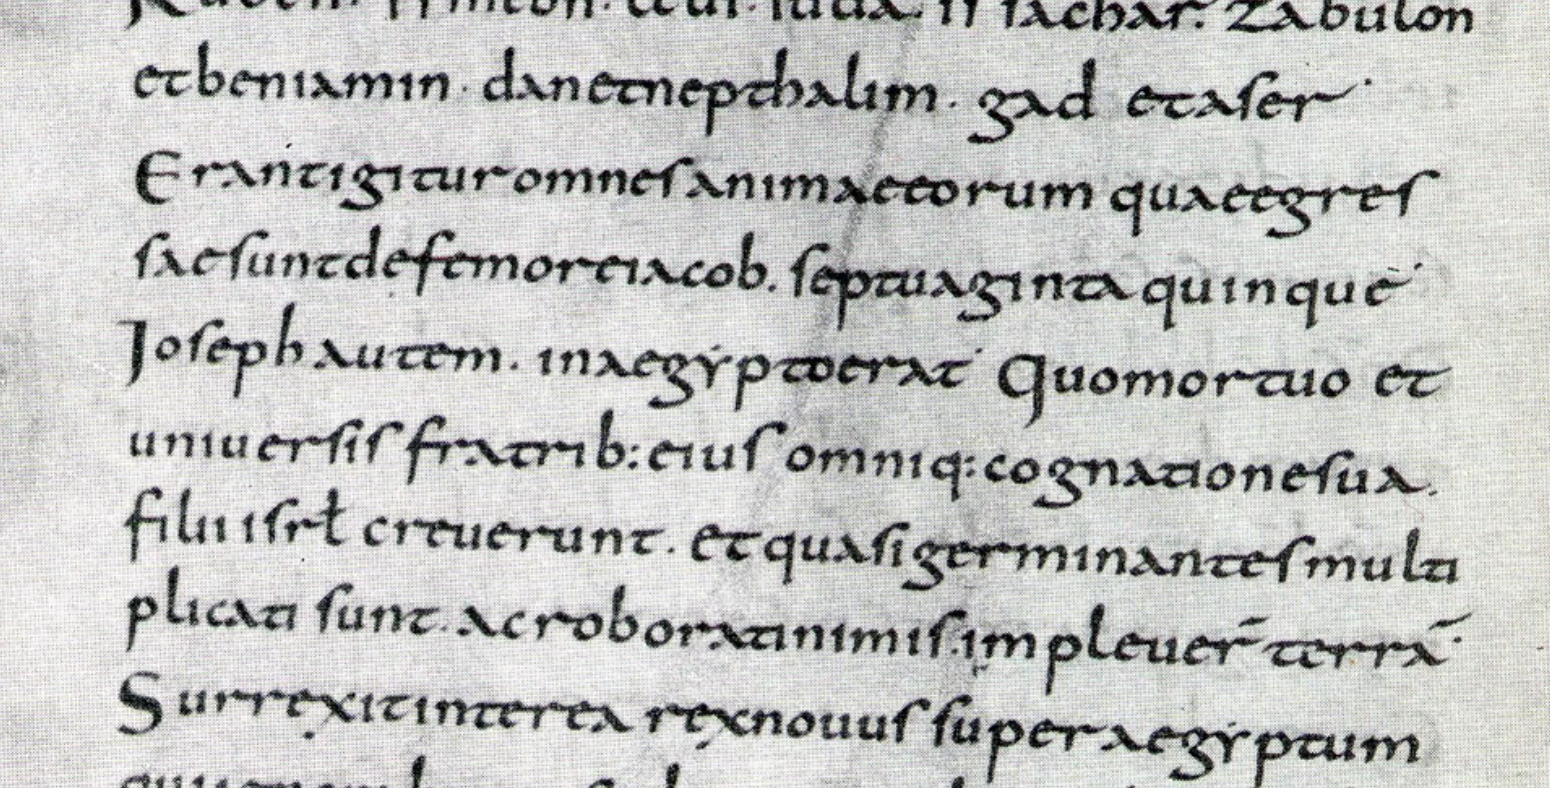 Ruben. symeon. leui. iuda. issachar. Zabulon
etbeniamin. danetnepthalim. gad etaser
Erantigituromnesanimaeeorum quaeegres
saesuntdefemoreiacob. septuaginta quinque
Joseph autem. inaegyptoerat Quomortuo et
uniuersis fratrib:eius omniq:cognationesua.
filii isrł creuerunt. etquasigerminantesmulti
plicati sunt. acroboratinimis.impleuer̄ terrā
Surrexitinterea rexnouus superaegyptum